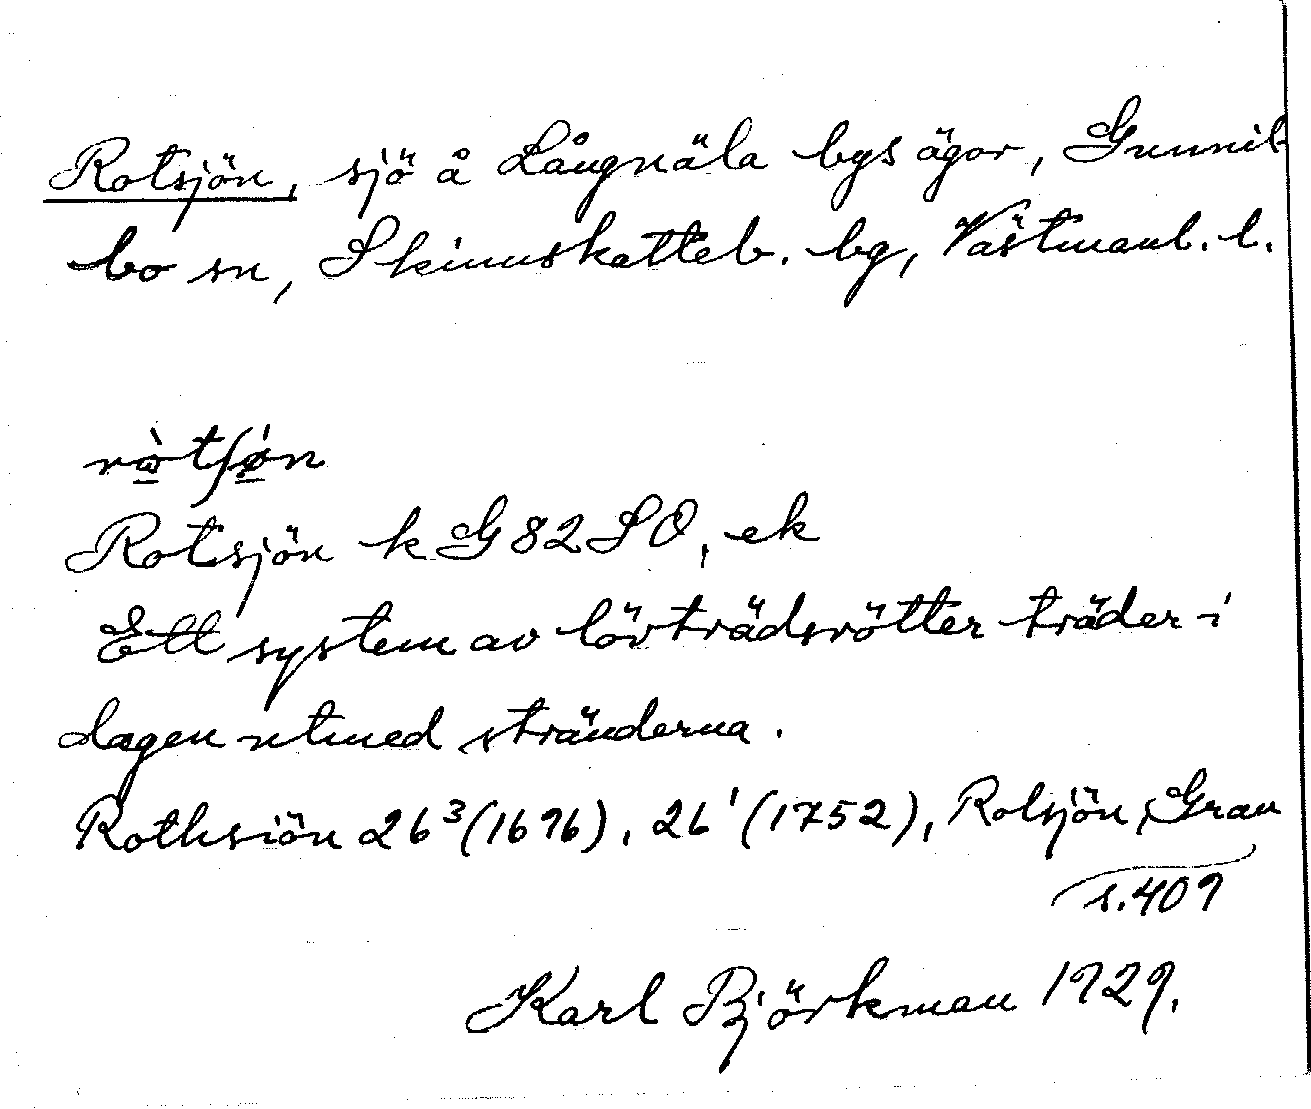 Rotsjön, sjö å Långnäla bys ägor, Gunnil-
bo sn, Skinnskatteb. bg, Västmanl. l.
rò̱tʃǿ̱n
Rotsjön k G82SO, ek
Ett system av lövträdsrötter träder i
dagen utmed stränderna.
Rothsiön 26³(1696), 26¹(1752), Rotsjön, Grau
s.409
Karl Björkman 1929.